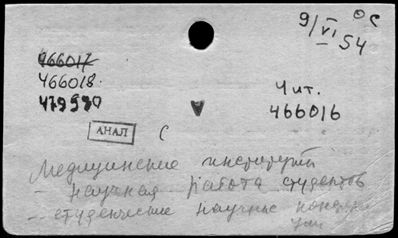 9/VI 54
ОС
466017
466018.
479530
Чит.
466016
АНАЛ
С
Медицинские институты
- научная работа студентов
- студенческие научные конфер